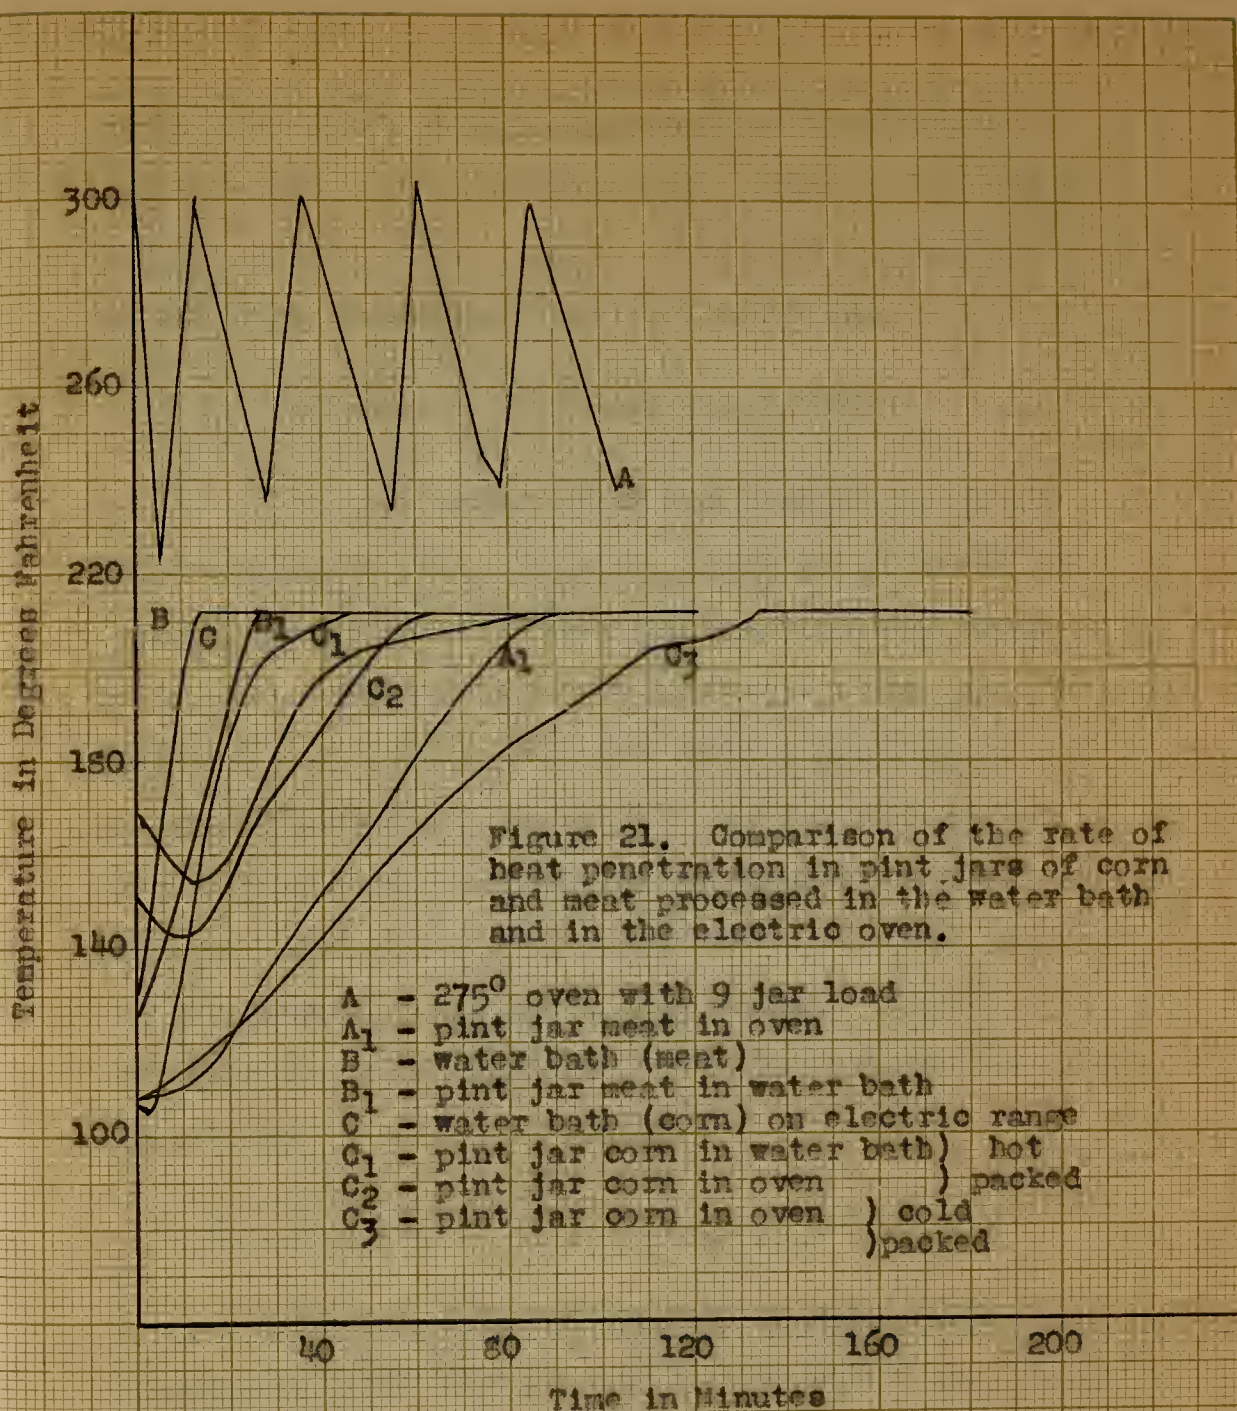 300
260
220
180
140
100
Temperature in Degrees Fahrenheit
A
B
C
B1
C1
C2
A1
C3
Figure 21. Comparison of the rate of
heat penetration in pint jars of corn
and meat processed in the water bath
and in the electric oven.
A - 275° oven with 9 jar load
A1 - pint jar meat in oven
B - water bath (meat)
B1 - pint jar meat in water bath
C - water bath (corn) on electric range
C1 - pint jar corn in water bath) hot
C2 - pint jar corn in oven ) packed
C3 - pint jar corn in oven ) cold
)packed
40 80 120 160 200
Time in Minutes